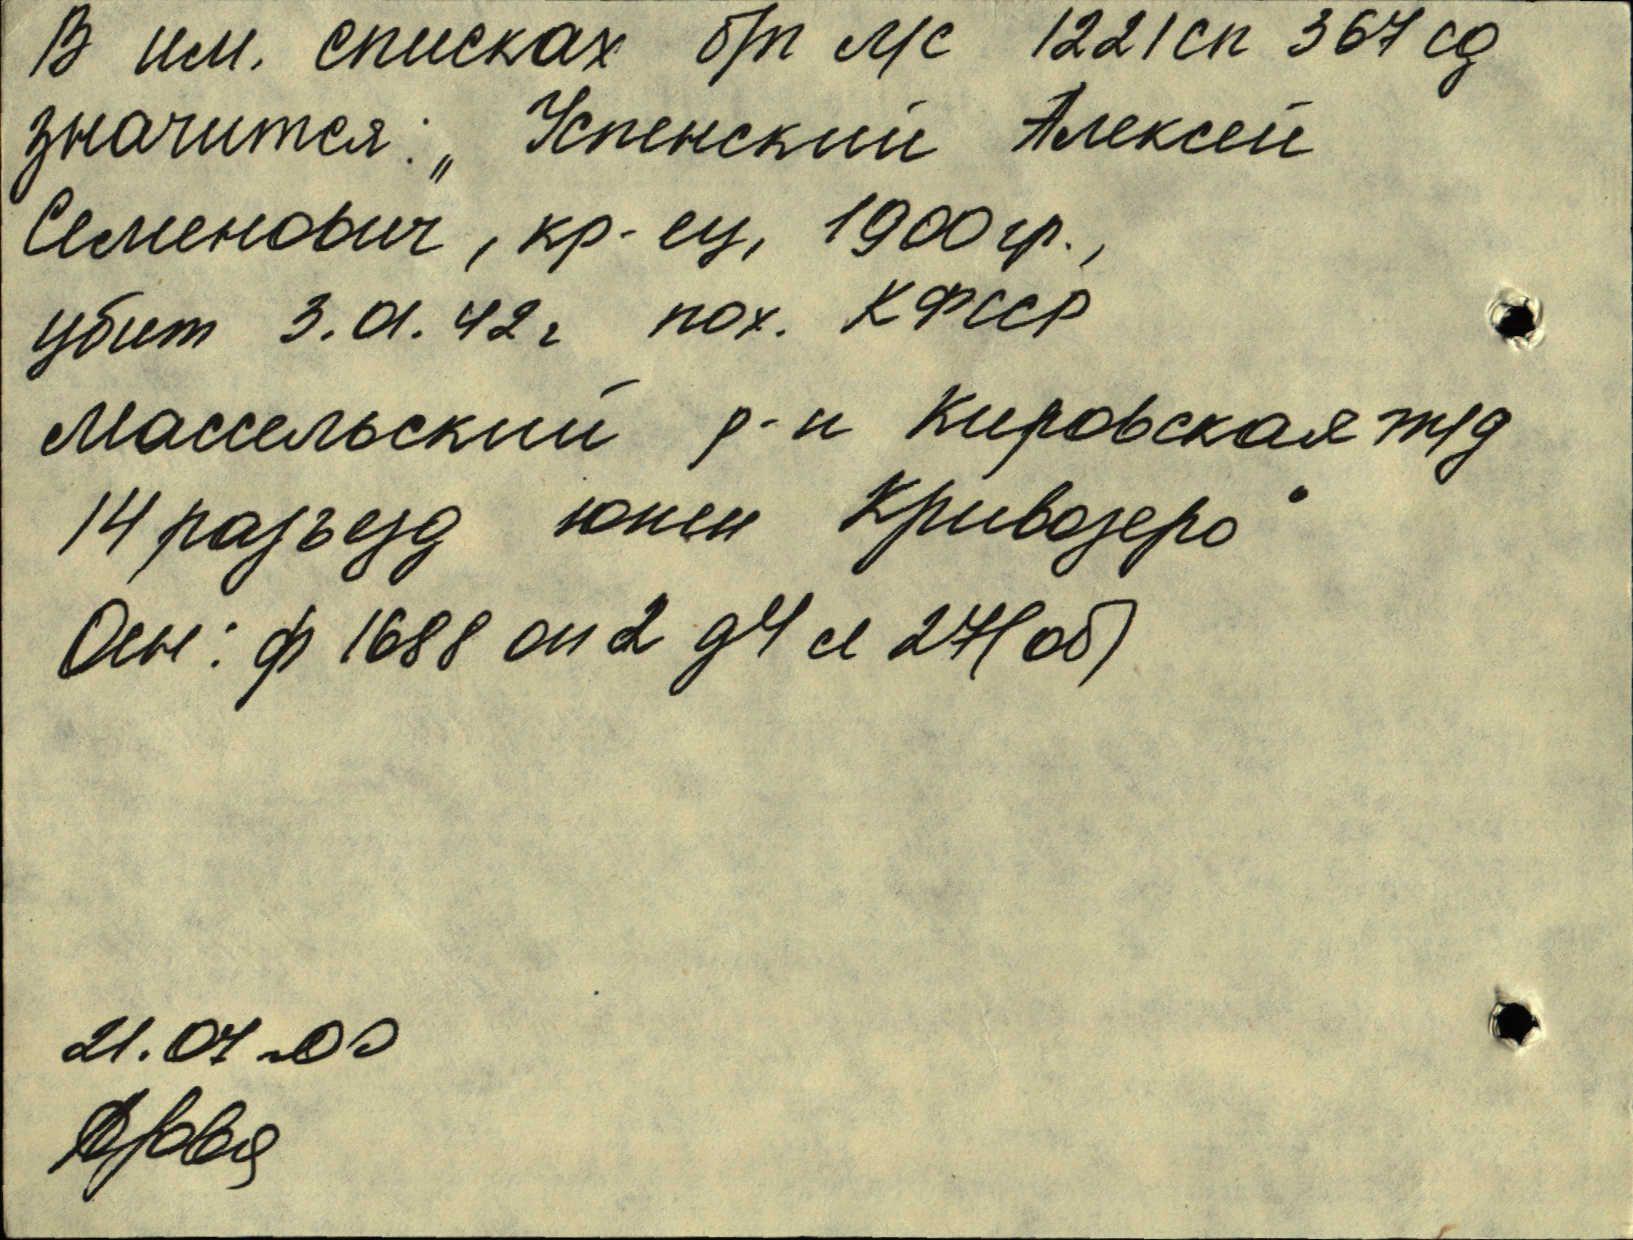 В им. списках б/п л/с 1221 сп 367 сд
значится: „Успенский Алексей
Семенович, кр-ец, 1900 гр.,
убит 3.01.42 г пох. КФССР
Массельский р-н Кировская ж/д
14 разъезд южн Кривозеро"
Осн: ф 1688 оп 2 д 4 л 27(об)
21.07.00